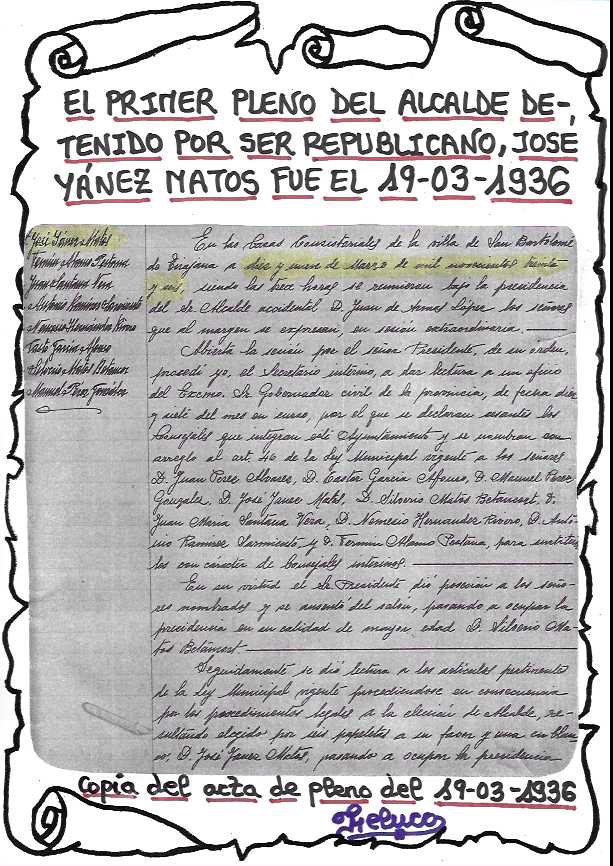 EL PRIMER PLENO DEL ALCALDE DE-
TENIDO POR SER REPUBLICANO, JOSE
YÁNEZ MATOS FUE EL 19-03-1936
José Yánez Matos
Fermín Alamo Pestana
Juan Santana Vera
Antonio Ramírez Sarmiento
Nemesio Hernández Rivero
Casto García Afonso
Silverio Matos Betancor
Manuel Pérez González
En las Casas Consistoriales de la villa de San Bartolomé
de Tirajana a diez y nueve de Marzo de mil novecientos treinta
y seis, siendo las trece horas se reunieron bajo la presidencia
del Sr Alcalde accidental D. Juan de Armas López los señores
que al margen se expresan, en sesión extraordinaria.
Abierta la sesión por el señor Presidente, de su orden,
procedí yo, el Secretario interino, a dar lectura a un oficio
del Excmo. Sr Gobernador civil de la provincia, de fecha diez
y siete del mes en curso, por el que se declaran cesantes los
Concejales que integran este Ayuntamiento y se nombran con
arreglo al art. 46 de la Ley Municipal vigente a los señores
D. Juan Pérez Alvarez, D. Castor García Afonso, D. Manuel Pérez
González, D. José Yanez Matos, D. Silverio Matos Betancort, D.
Juan María Santana Vera, D. Nemesio Hernandez Rivero, D. Anto-
nio Ramirez Sarmiento y D. Fermin Alamo Pestana, para
con caracter de Concejales interinos.
En su virtud el Sr Presidente dió posesión a los seño-
res nombrados y se ausentó del salon, pasando a ocupar la
presidencia en su calidad de mayor edad D. Silverio Ma-
tos Betancort.
Seguidamente se dió lectura a los artículos pertinentes
de la Ley Municipal vigente procediendose en consecuencia
por los procedimientos legales a la elección de Alcalde, re-
sultando elegido por seis papeletas a su favor y una en blan-
co, D. José Yanez Matos, pasando a ocupar la presidencia
Copia del acta de pleno del 19-03-1936